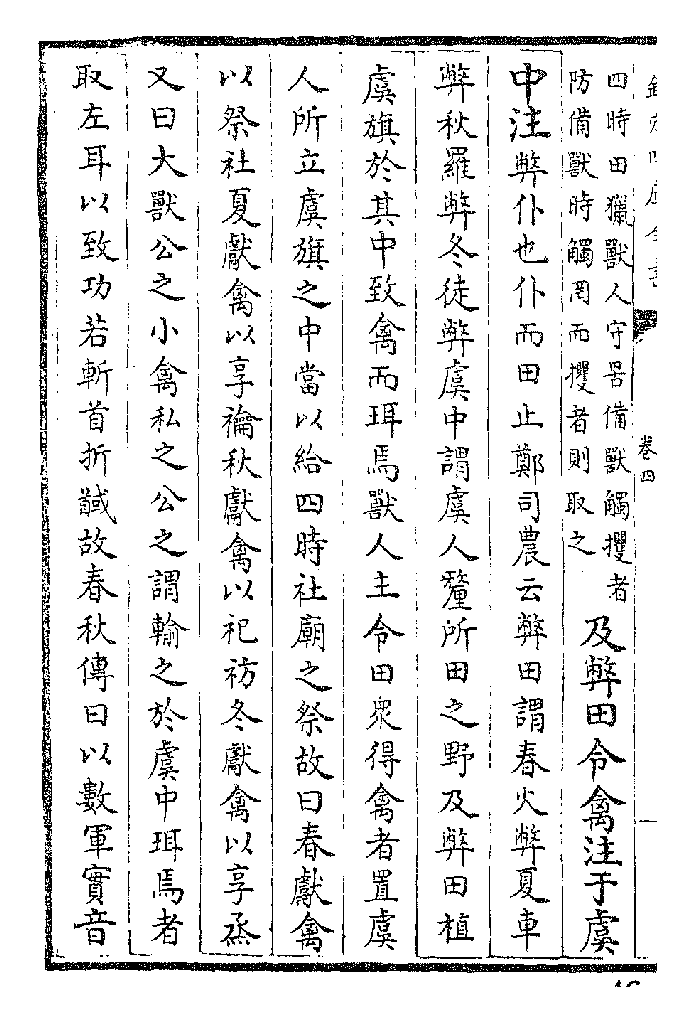 欽定四庫全書
卷四
四時田獵獸人守罟備獸觸攫者
防備獸時觸罔而攫者則取之
及弊田令禽注于虞
中注弊仆也仆而田止鄭司農云弊田謂春火弊夏車
弊秋羅弊冬徒弊虞中謂虞人釐所田之野及弊田植
虞旗於其中致禽而珥焉獸人主令田衆得禽者置虞
人所立虞旗之中當以給四時社廟之祭故曰春獻禽
以祭社夏獻禽以享禴秋獻禽以祀祊冬獻禽以享烝
又曰大獸公之小禽私之公之謂輸之於虞中珥焉者
取左耳以致功若斬首折馘故春秋傳曰以數軍實音